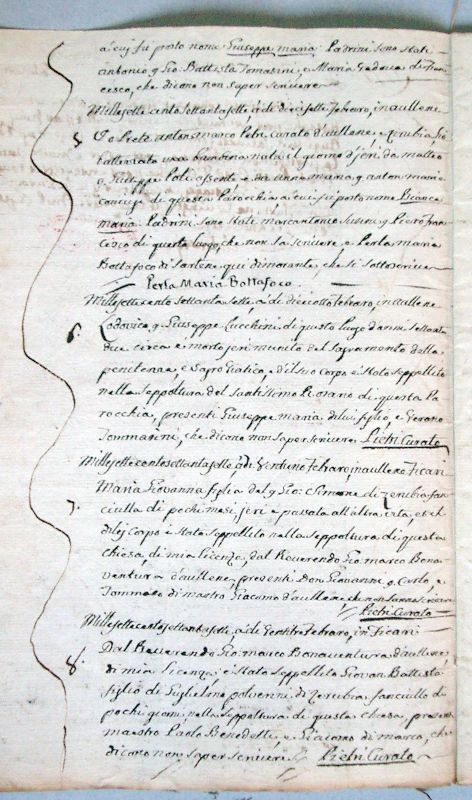 a cui fu posto nome Giuseppe maria: Padrini sono stati
antonio q Gio: Battista Tomasini, e Maria Vedova di Fran
cesco, che dicono non saper scrivere
Millesettecento settantasette, a dì diecisette febraro, in aullene
5. Io Prete antonmarco Petri Curato d'aullene, e Zerubia, hò
battezzato una bambina nata il giorno d'jeri da matteo
q Giuseppe Poli assente e da anna maria q anton maria
coniugi di questa Parocchia, a cui fù posto nome Bianca
Maria. Padrini sono stati marcantonio Susini q Pietro Fran
cesco di questo luogo, che non sa scrivere, e Perla maria
Bottafoco di Sartene qui dimorante, che si sottoscrive
Perla Maria Bottafoco
Millesettecento settantasette, a dì dieciotto febraro, in aullene
6. Lodovico q Giuseppe Lucchini di questo luogo d'anni settanta
due circa è morto jeri munito del sagramento della
penitenza, e Sagro Viatico, e il suo Corpo è stato seppellito
nella seppoltura del Santissimo Rosario di questa Pa
rocchia, presenti Giuseppe maria di lui figlio, e
Tommasini, che dicono non saper scrivere Pietri Curato
Millesettecentosettantasette, a dì Ventuno febraro, in aullene Ficari
7. Maria Giovanna figlia del q Gio: Simone di Zerubia fan
ciulla di pochi mesi, jeri è passata all'altra vita, et il
di lej Corpo è stato seppellito nella seppoltura di questa
chiesa, di mia licenza, dal Reverendo Gio: marco Bona
ventura d'aullene, presenti Don Giovanni q Carlo, e
Tommaso di mastro Giacomo d'aullene che non sanno scrivere
Pietri Curato
Millesettecentosettantasette, a dì Ventitre febraro, in Ficari
8. Dal Reverendo Gio: marco Bonaventura d'aullene,
di mia licenza, è stato seppellito Giovan Battista
figlio di Guglielmo, di Zerubia, fanciullo di
pochi giorni, nella seppoltura di questa chiesa, presenti
maestro Paolo Benedetti, e Giacomo di marco, che
dicono non saper scrivere Pietri Curato